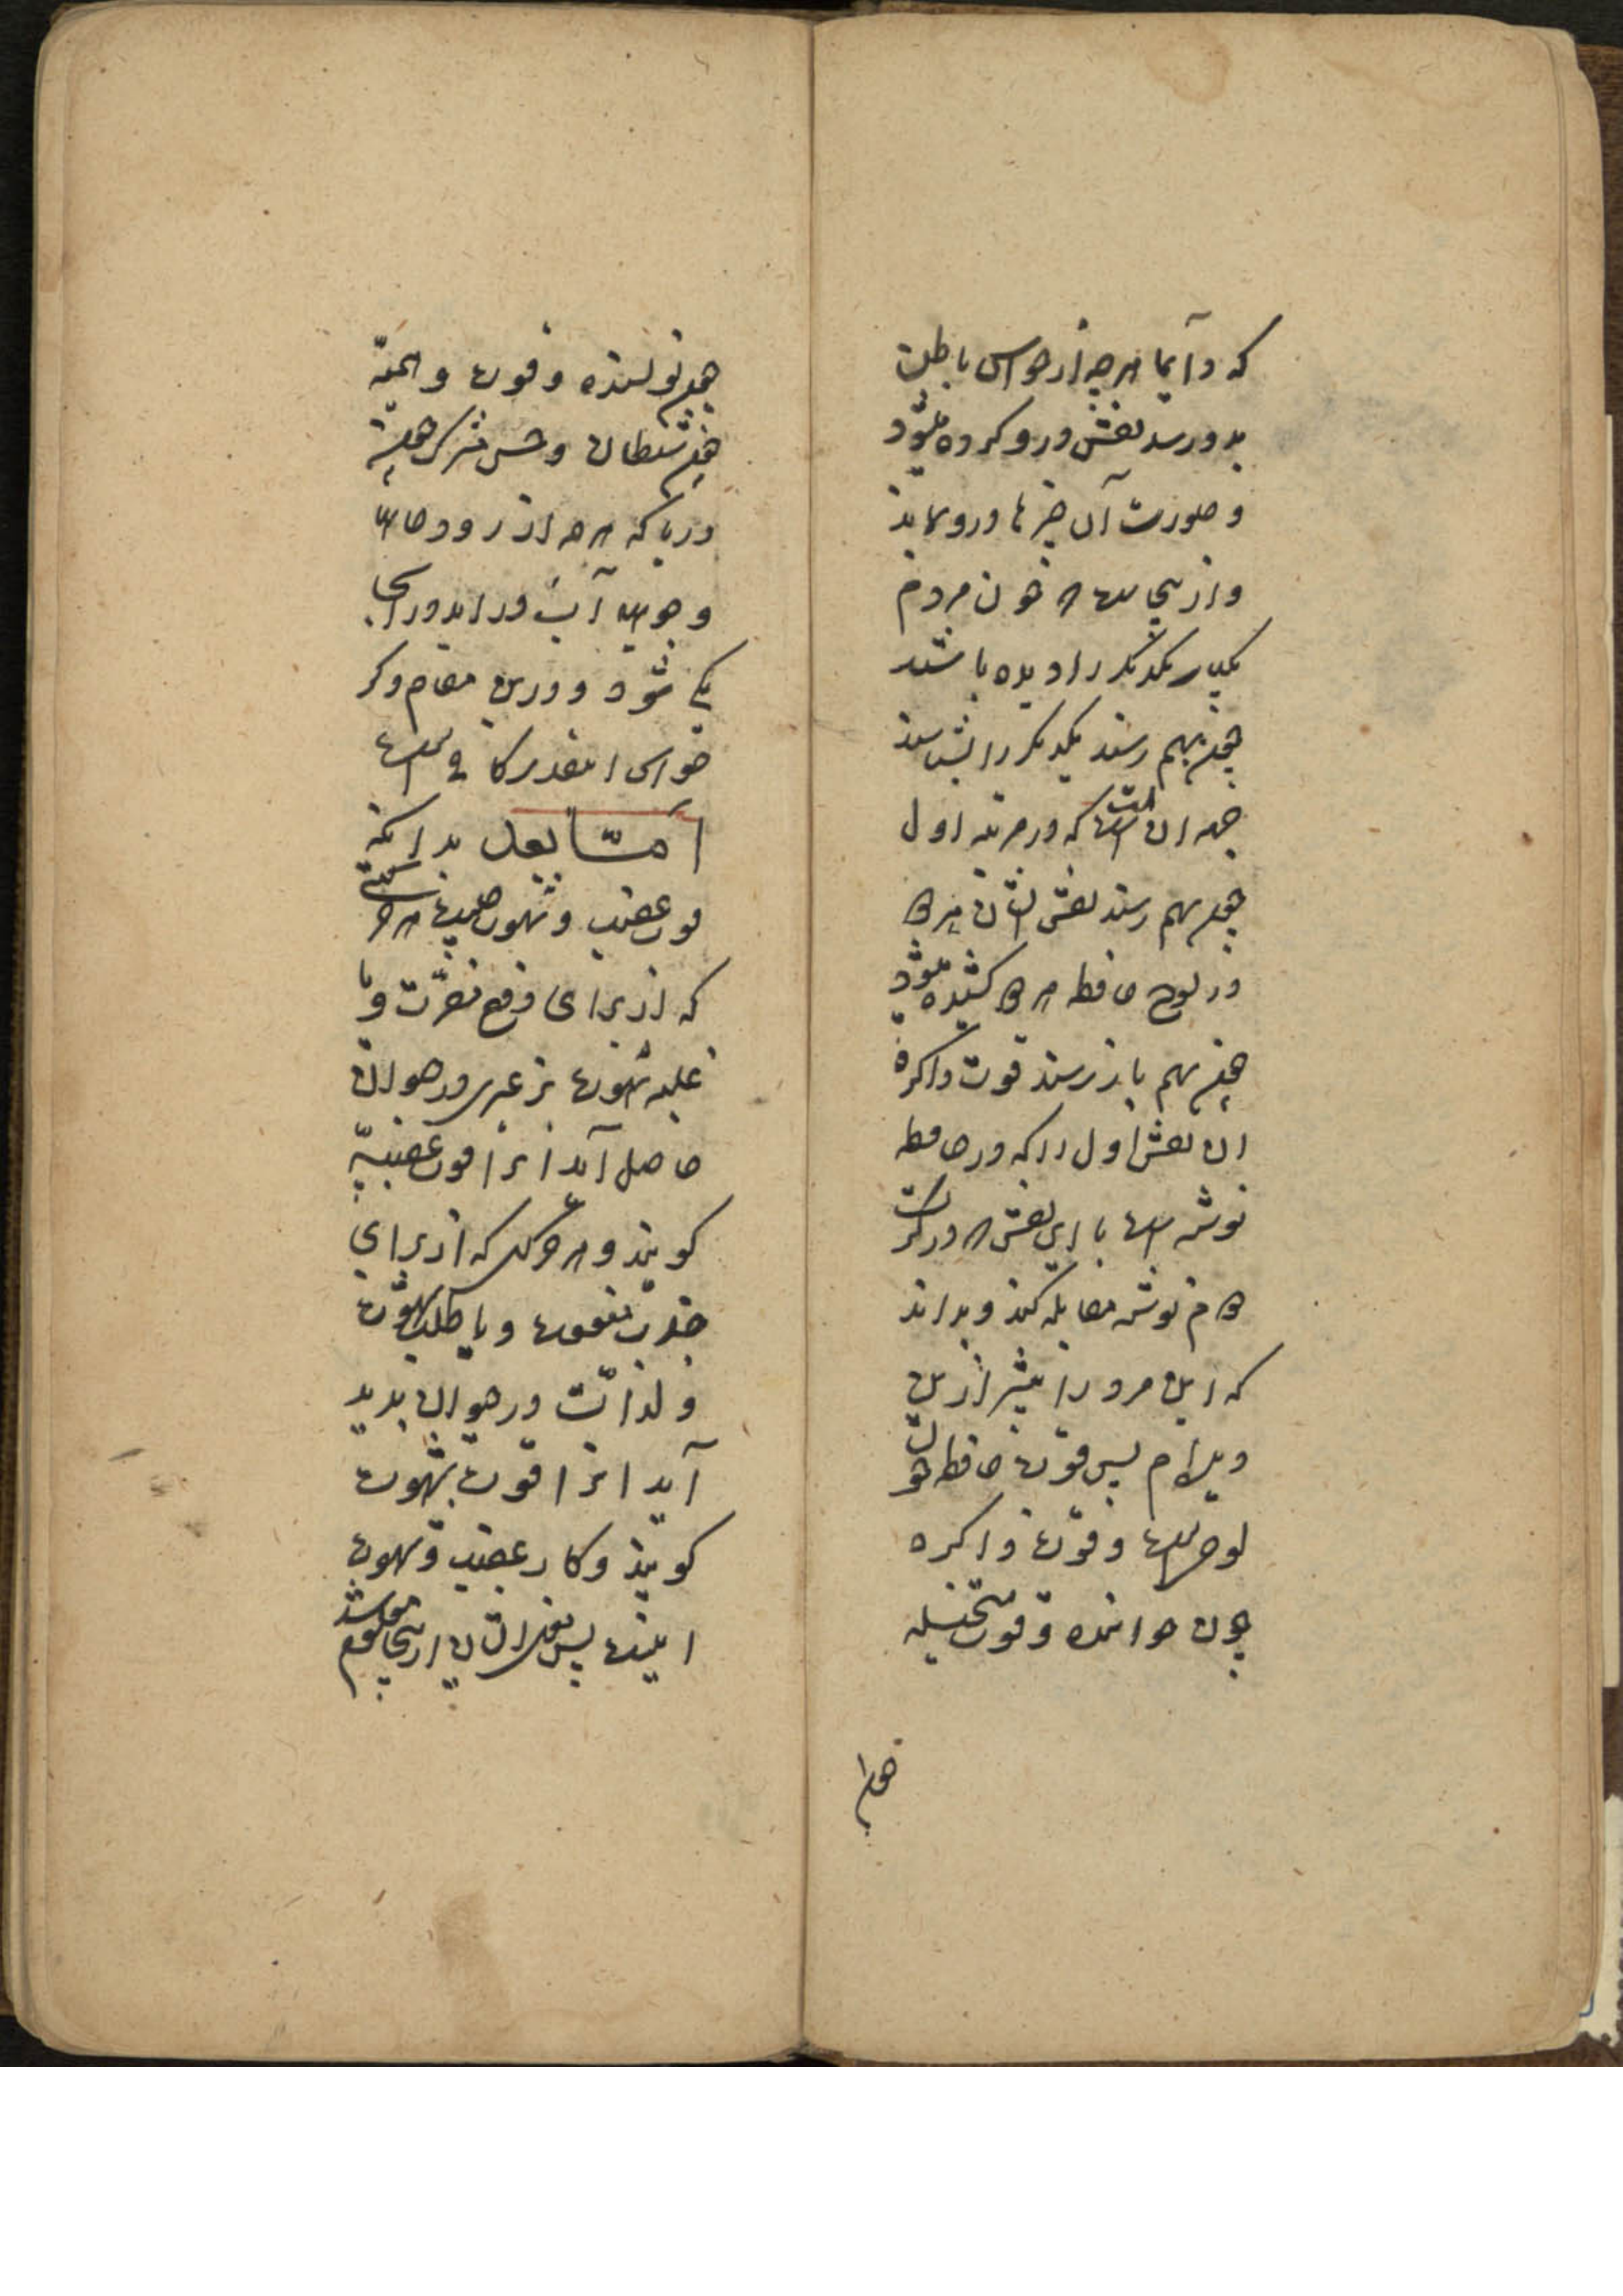 که دآیما هرچه از حواس باطن
بدو رسد نقش درو کرده میشود
و صورت آن چیزها درو نماید
و از نیجاست که چون مردم
یکبار یکدیگر را دیده باشند
چون بهم رسند یکدیگر را بشناسند
جهه ان است که در مرتبه اول
چون بهم رسند نقش ایشان هر دو
در لوح حافظه هر دو کشیده میشود
چون بهم باز رسند قوت ذاکره
ان نقش اول را که در حافظه
نوشته است با این نقش که در کرت
دوم نوشته مقابله کند و بداند
که این مرد را پیشتر ازین
دیده‌ام پس قوت حافظه چون
لوح است و قوت ذاکره
چون خواننده و قوت متخیله
چون
چون نویسنده و قوت واهمه
چون شیطان و حس مشترک چون
دریا که هر چه از رودها
و جویها آب در اید در انجا
یکی شود و درین مقام ذکر
حواس اینقدر کافی است
امّا بعد بدانکه
قوت غضب و شهوت چیست هر حرکتی
که از برای دفع مضرّت و یا
غلبه شهوت بر غیری در حیوان
حاصل آید انرا قوت غضبیّه
گویند و هر حرکت که از برای
جذب منفعت و یا طلب شهوت
و لذات در حیوان پدید
آید انرا قوت شهوت
گویند و کار غضب و شهوت
اینست پس انسان ازینجا معلوم شد